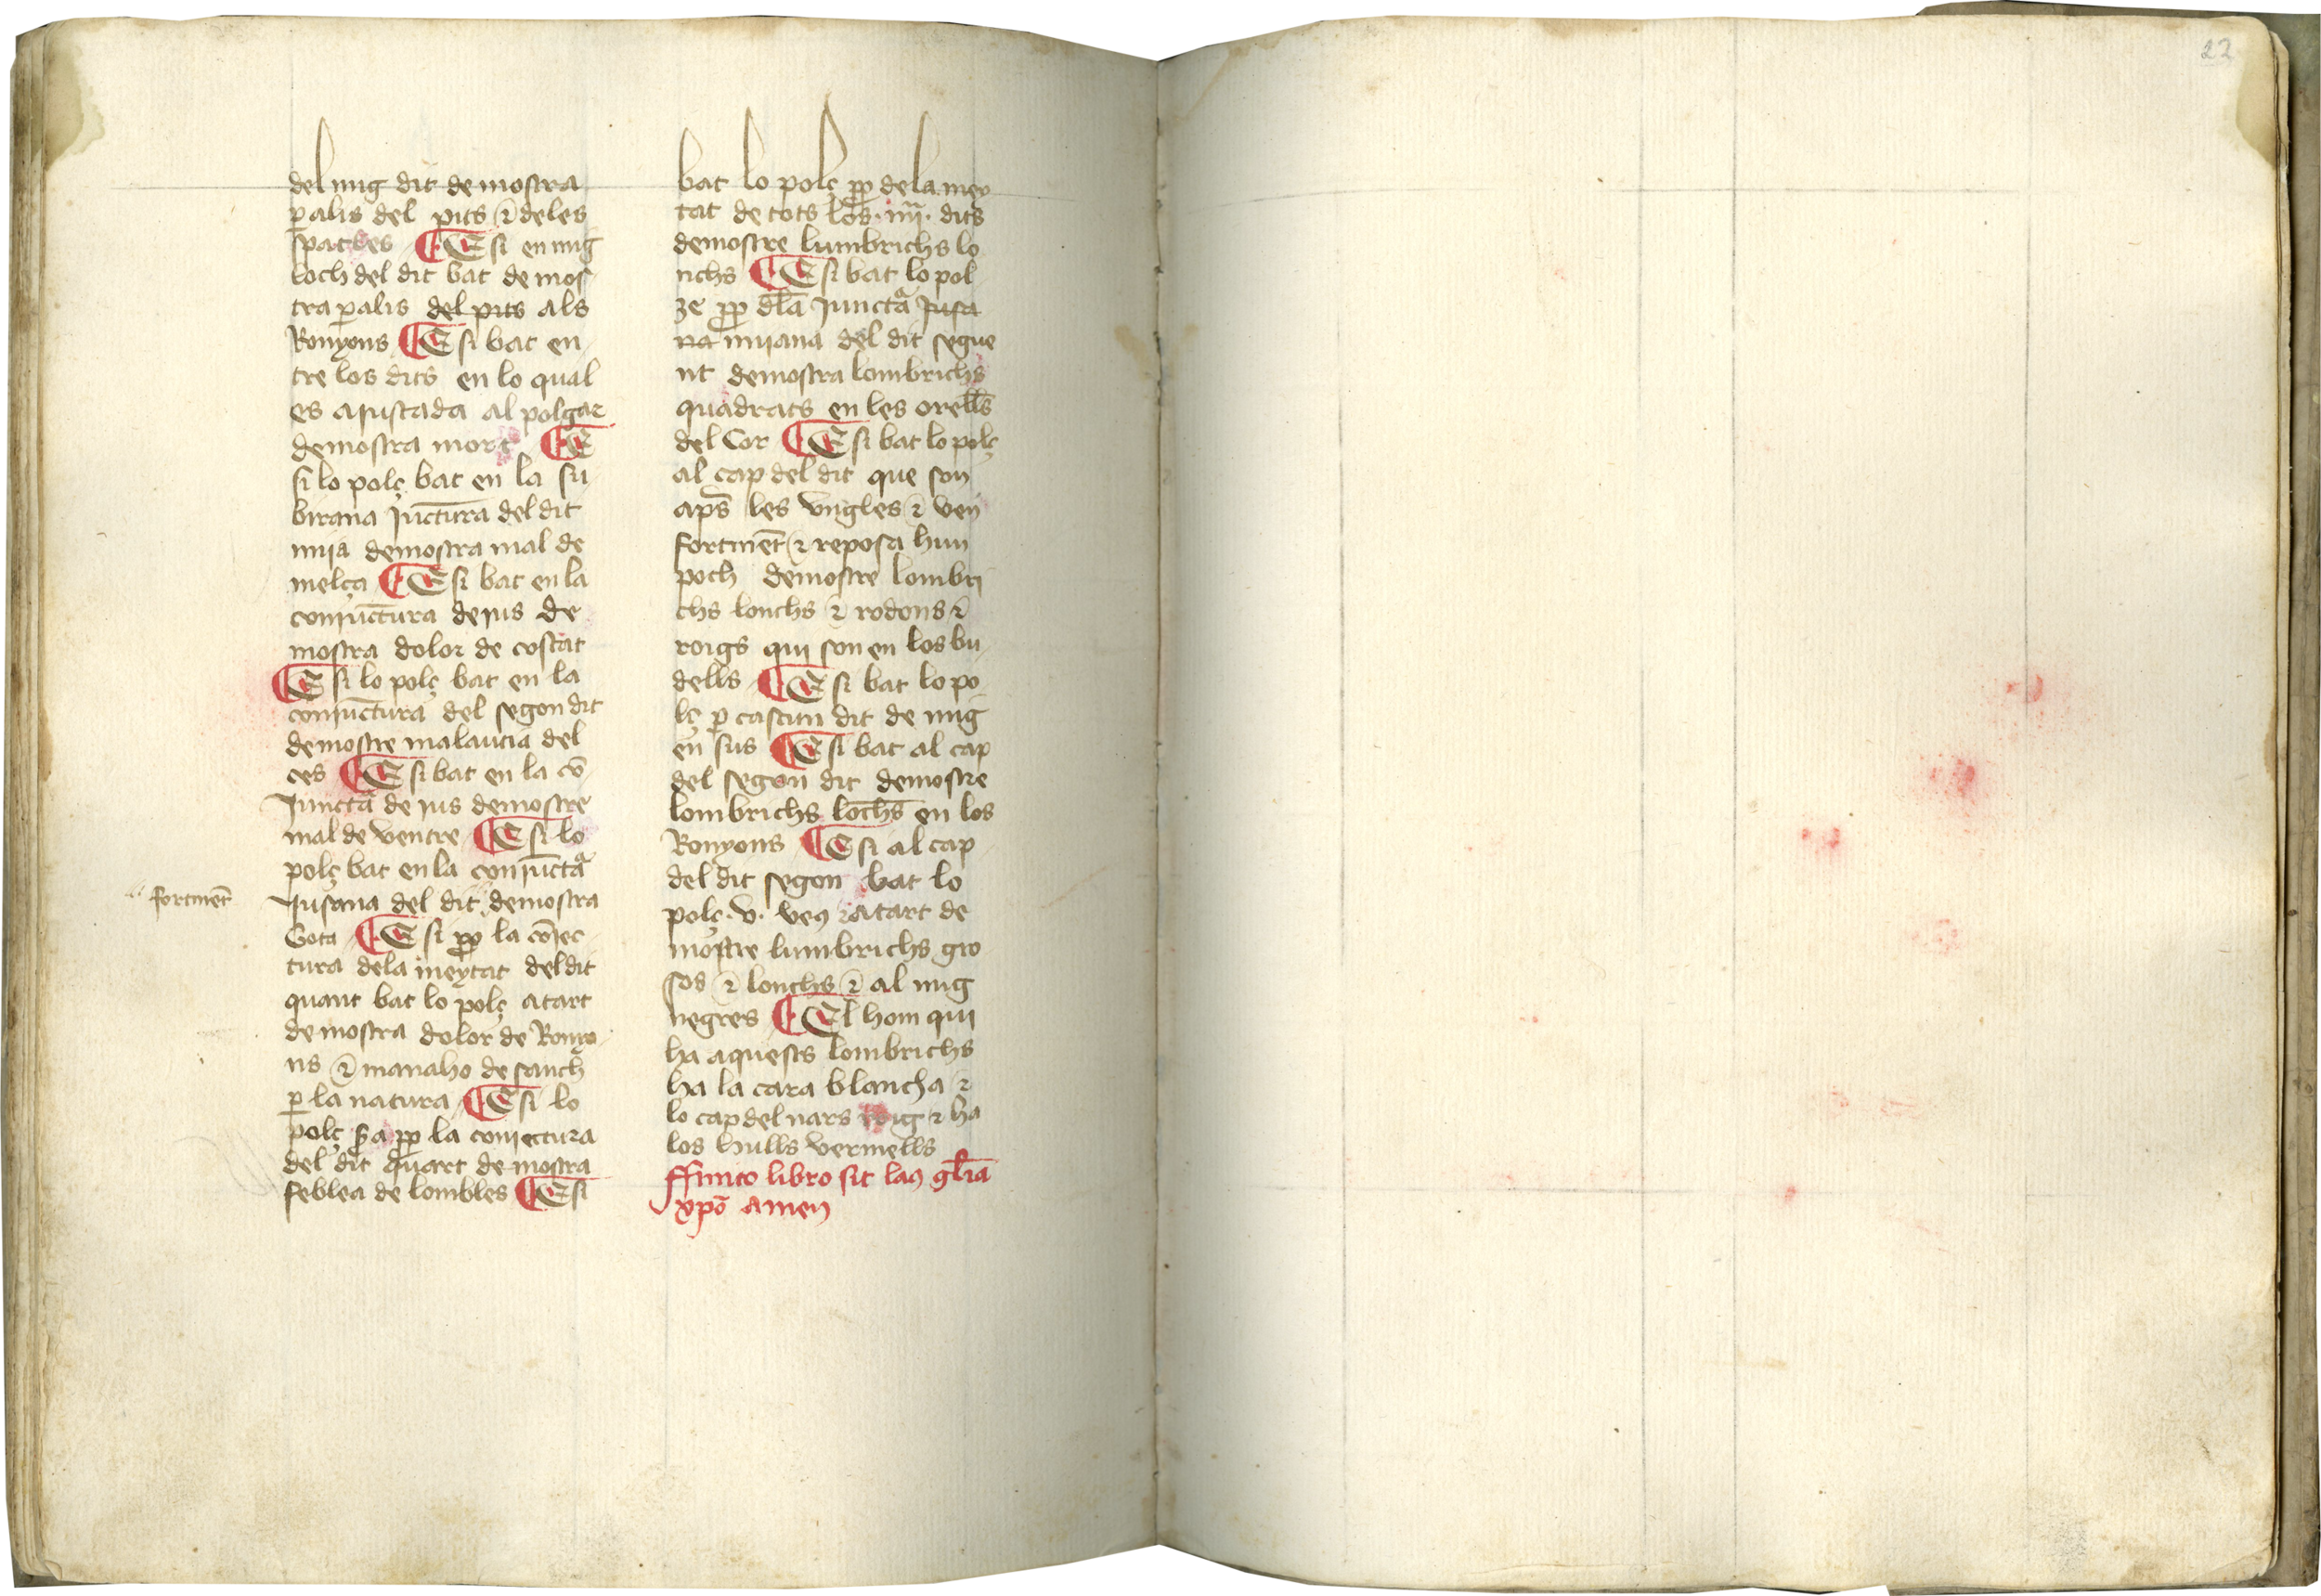 22
del mig dit demostra
ꝑalis del pits ⁊ deles
spatles ¶ E si en mig
loch del dit bat demos
tra ꝑalis del pits als
Ronyons ¶ E si bat en
tre los dits en lo qual
es aiustada al polgar
demostra mort ¶ E
si lo polç bat en la su
birana Iūctura del dit
mija demostra mal de
melça ¶ E si bat en la
coniūctura de ius de
mostra dolor de costat
¶ E si lo polç bat en la
coniūctura del segon dit
demostre malautia del
ces ¶ E si bat en la cō
Iunctᵃ de ius demostre
mal de ventre ¶ E si lo
polç bat en la coniūctᵃ
Iusana del dit demostra
fortmēt
Gota ¶ E si ꝓp la cōiec
tura dela meytat del dit
quant bat lo polç atart
demostra dolor de Ronyo
ns ⁊ manaho de sanch
ꝑ la natura ¶ E si lo
polç ꝓp la coniectura
del dit quart demostra
feblea de lombles ¶ E si
bat lo polç ꝓp dela mey
tat de tots los .iiij. dits
demostre lumbrichs lo
nchs ¶ E si bat lo pol
ze ꝓp dla Iunctᵃ Iusa
na mijana del dit segue
nt demostra lombrichs
quadrats en les orells
del Cor ¶ E si bat lo polç
al cap del dit que son
aps les vngles ⁊ ven
fortmēt ⁊ reposa hun
poch demostre lombri
chs lonchs ⁊ rodons ⁊
roigs qui son en los bu
dells ¶ E si bat lo po
lç ꝑ cascun dit de mig
en sus ¶ E si bat al cap
del segon dit demostre
lombrichs lōchs en los
Ronyons ¶ E si al cap
del dit segon bat lo
polç .v. veꝫ ⁊ atart de
mostre lumbrichs gro
sos ⁊ lonchs ⁊ al mig
negres ¶ El hom qui
ha aquests lombrichs
ha la cara blancha ⁊
lo cap del nars roig ⁊ ha
los hulls vermells
ffinito libro sit laꝫ gl̄ia
xp̄o amen